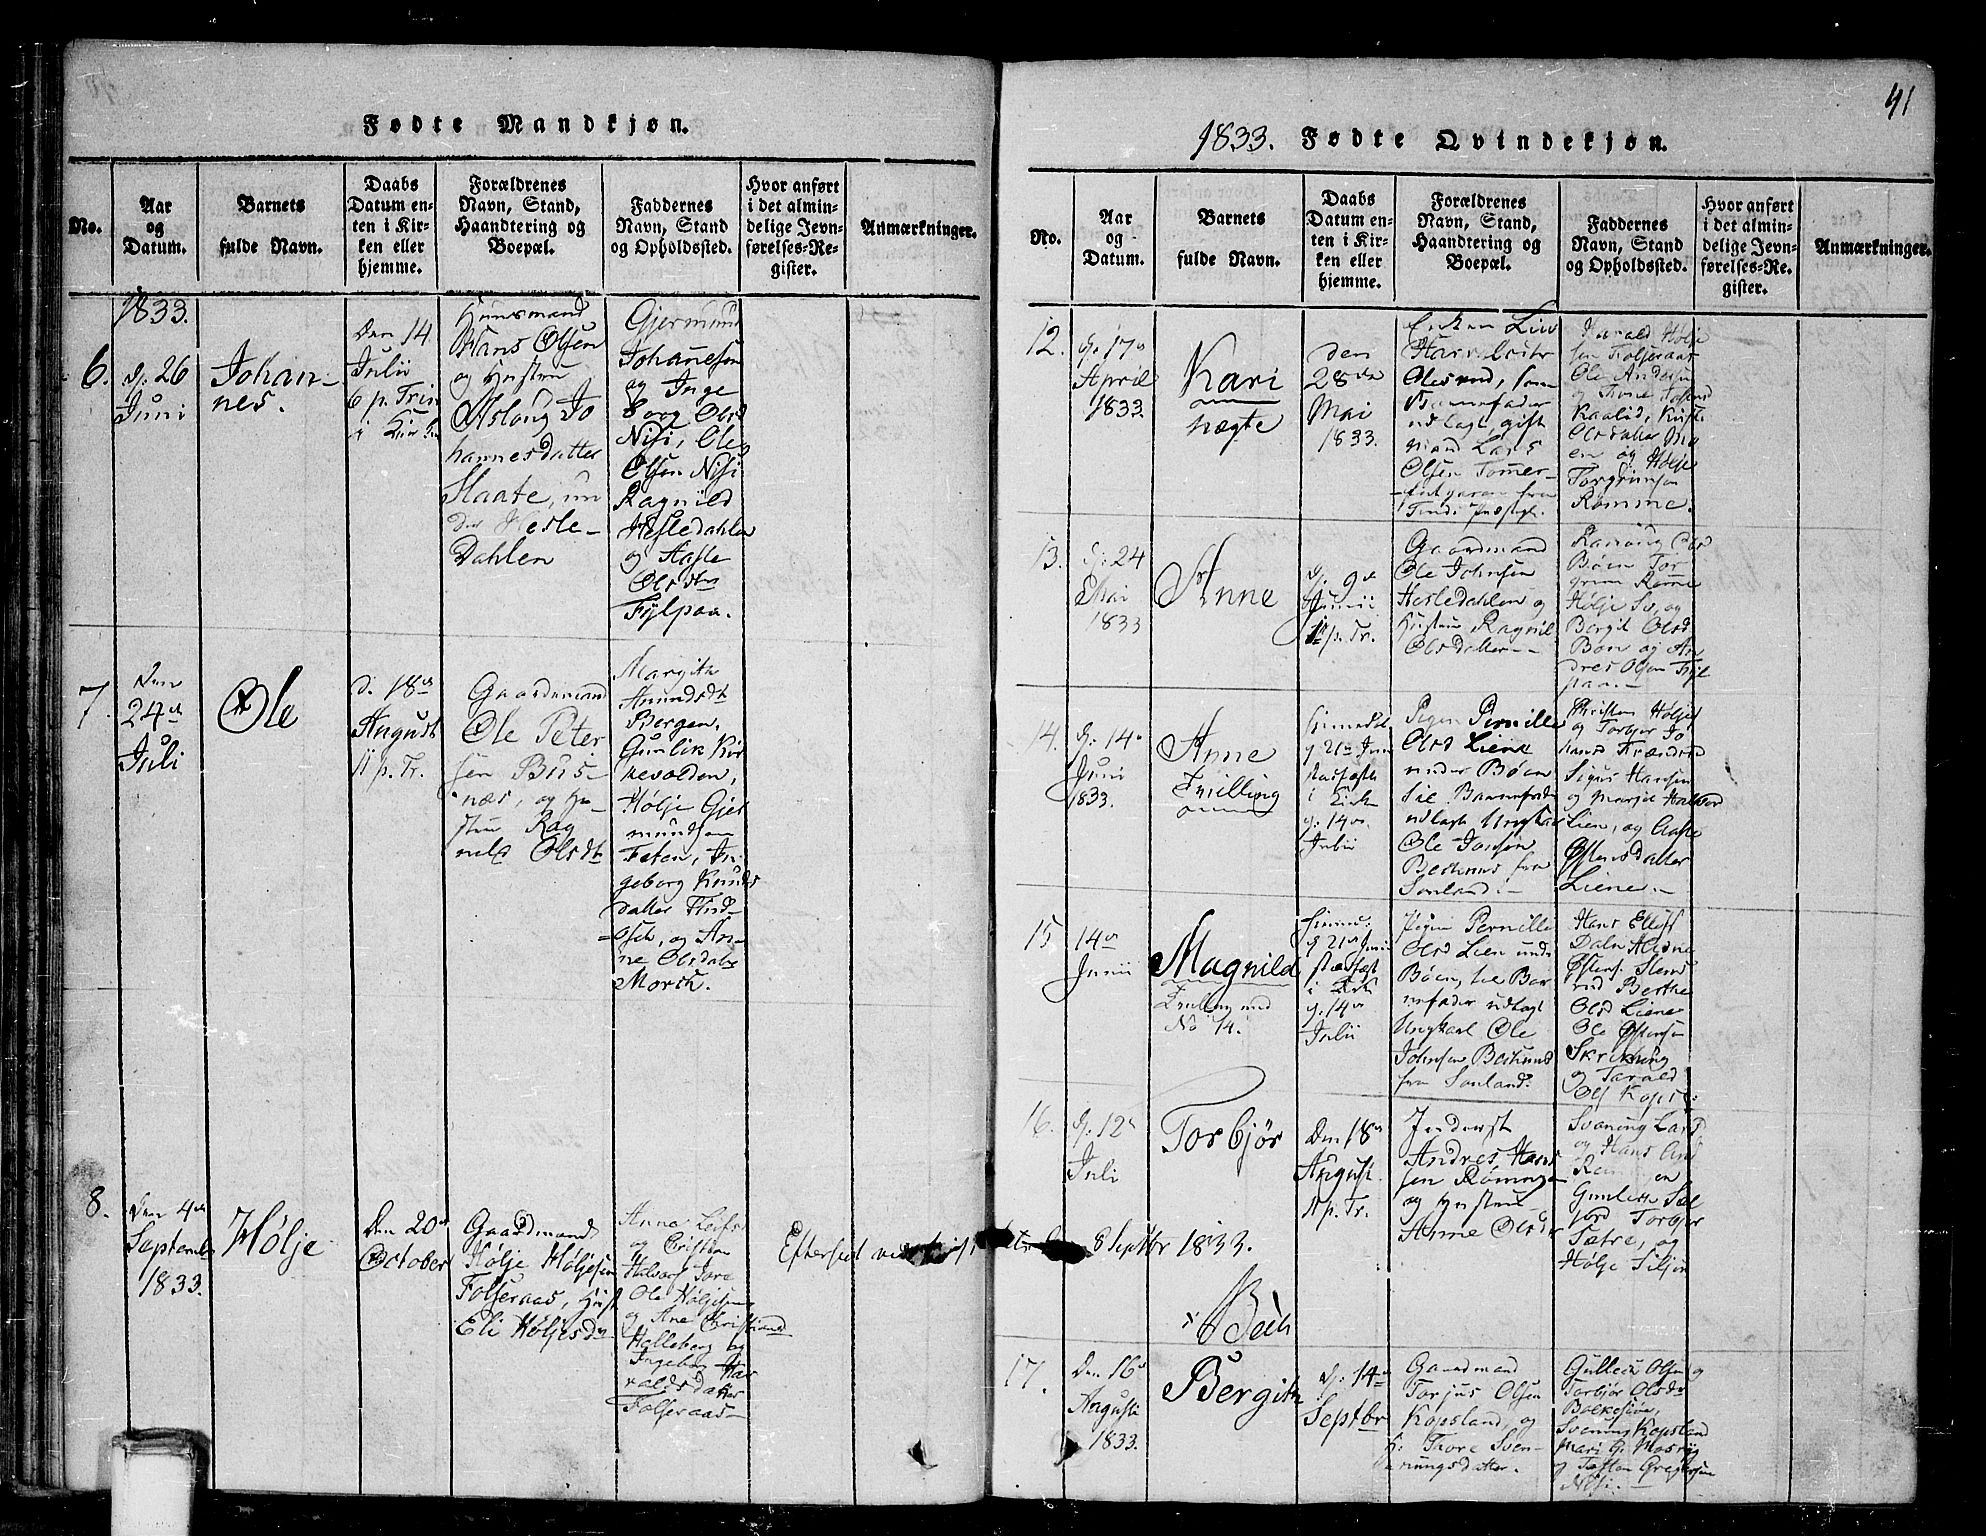 Fødte Mandkjøn.
No.
Aar
og
Datum.
Barnets
fulde Navn.
Daabs
Datum en-
ten i Kir-
ken eller
hjemme.
Forældrenes
Navn, Stand,
Haandtering og
Boepæl.
Faddernes
Navn, Stand
og Opholdssted.
Hvor anført
i det almin-
delige Jevn-
førelses-Re-
gister.
Anmærkninger.
1833.
6.
d: 26
Juni
Johan-
nes.
Den 14
Julii
6 p. Trin
i Kirken
Huusmand
Hans Olsen
og Hustru
Aslaug Jo
hannesdatter
Slaate, un
der Hesle-
Dahlen
Gjermund
Johannesen
og Inge
borg Olsd
Nisi, Ole
Olsen Nisi
Ragnild
Hesledahlen
og Aaste
Olsdtr
Fylpaa.
7.
Den
24de
Juli
Ole
d. 18de
August
11 p. Tr.
Gaardemand
Ole Peter
sen Bus-
næs, og Hu-
stru Rag
nild Olsdt
Margith
Amundsdt
Bergen,
Gunlik Kir
kevolden,
Hølje Gjer
mundsen
Teten, In-
geborg Knuds
datter
og An-
ne Olsdatr
Morch.
8.
Den 4de
Septembr
1833.
Hølje
Den 20de
October
Gaardmand
Hølje Høljesen
Folseraas, Hust
Eli Høljesdr
Anne Leifsd
og Cristian
Halvors Jore
Ole Høljesen
og Ane Christiansd
Halleberg og
Ingebor Har
raldsdatter
Folseraas
Efterseet ved
8 Septbr 1833.
Bech
41
1833. Fødte Qvindekjøn.
No.
Aar
og
Datum.
Barnets
fulde Navn.
Daabs
Datum en-
ten i Kir-
ken eller
hjemme.
Forældrenes
Navn, Stand,
Haandtering og
Boepæl.
Faddernes
Navn, Stand
og Opholdssted.
Hvor anført
i det almin-
delige Jevn-
førelses-Re-
gister.
Anmærkninger.
12.
d. 17de
April
1833.
Kari
uægte
den
28de
Mai
1833.
Enken Liv
Harraldsdtr
som
Barnefader
udlagt, gift
mand Lars
Olsen
fra
Tinds Præstgl.
Harald Hølje
sen Folseraas
Ole Andersen
og Tone
Kaalid, Kirsti
Olsdatter
en og Hølje
Torgrimsen
Rømme.
13.
d: 24
Mai
1833
Anne
d. 9de
Junii
1 p. Tr.
Gaardmand
Ole Johnsen
Hesledahlen og
Hustru Ragnil
Olsdatter
Ranoug Olsd
Bøen Tor
grim Rømme
Hølje
Bergit Olsd
Bøn og An
dres Olsen Fyl
paa.
14.
d. 14de
Juni
1833.
Anne
Tvilling
hiemdøbt
d 21de Juni
stadfæstet
i Kirken
d. 14de
Julii
Pigen Pernille
Olsd Liene
under Bøen
til Barnefader
udlagt Ungkarl
Ole Jonsen
fra
Sauland.
Christen Høljes
og Torbjør Jo
hansd
Sigur Hansen
og Margit Halvord
Lien, og Aaste
Østensdatter
Liene.
15
14de
Junii
Magnild
Tvilling med
No 14.
hiemdøbt
d 21de Juni
stadfæst
i Kirken
d. 14de
Julii
Pigen Pernille
Olsd Lien under
Bøen, til Bar
nefader udlagt
Ungkarl Ole
Johnsen
fra Sauland.
Hans Ellefs
Daln
Østens.
Berthe
Olsd Liene
Ole Østensen
og Tarald
Ols Kopsl
16.
d. 12te
Juli
Torbjør
Den 18de
August.
11 p. Tr.
Inderst
Andres Hans
sen Rømmen
og Hustru
Anne Olsdr
Svenung Lars
og Hans And
Gunlech
Torbjør
Sætre, og
Hølje Siljan
17.
Den 16de
Augusti
1833.
Bergith
d. 14de
Septbr
Gaardmand
Torjus Olsen
Kopsland, og
H: Thore Sven-
nungsdatter.
Gullech Olsen og
Torbjør Olsdr
Bolkesiøe,
Svenung Kopsland
Mari G.
og Tosten Gregersen
Nisi.